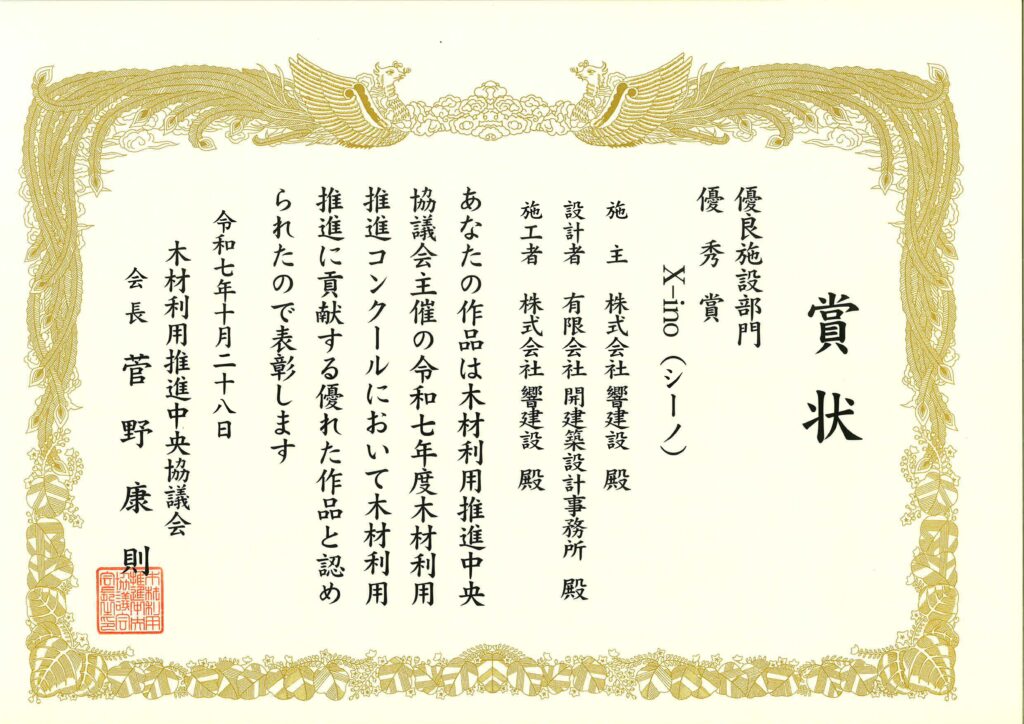 賞状
優良施設部門
優秀賞
X-ino（シーノ）
施主 株式会社 響建設 殿
設計者 有限会社 開建築設計事務所 殿
施工者 株式会社 響建設 殿
あなたの作品は木材利用推進中央
協議会主催の令和七年度木材利用
推進コンクールにおいて木材利用
推進に貢献する優れた作品と認め
られたので表彰します
令和七年十月二十八日
木材利用推進中央協議会
会長 菅野康則
木材利用
推進中央
協議会
会長之印